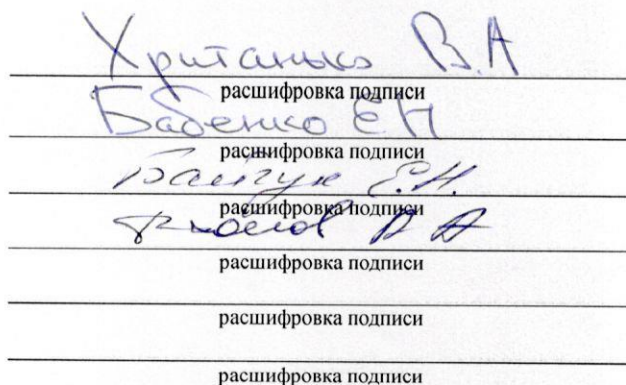 Хританько В.А
расшифровка подписи
Бабенко Е Н
расшифровка подписи
Е.Н.
расшифровка подписи
А А
расшифровка подписи
расшифровка подписи
расшифровка подписи